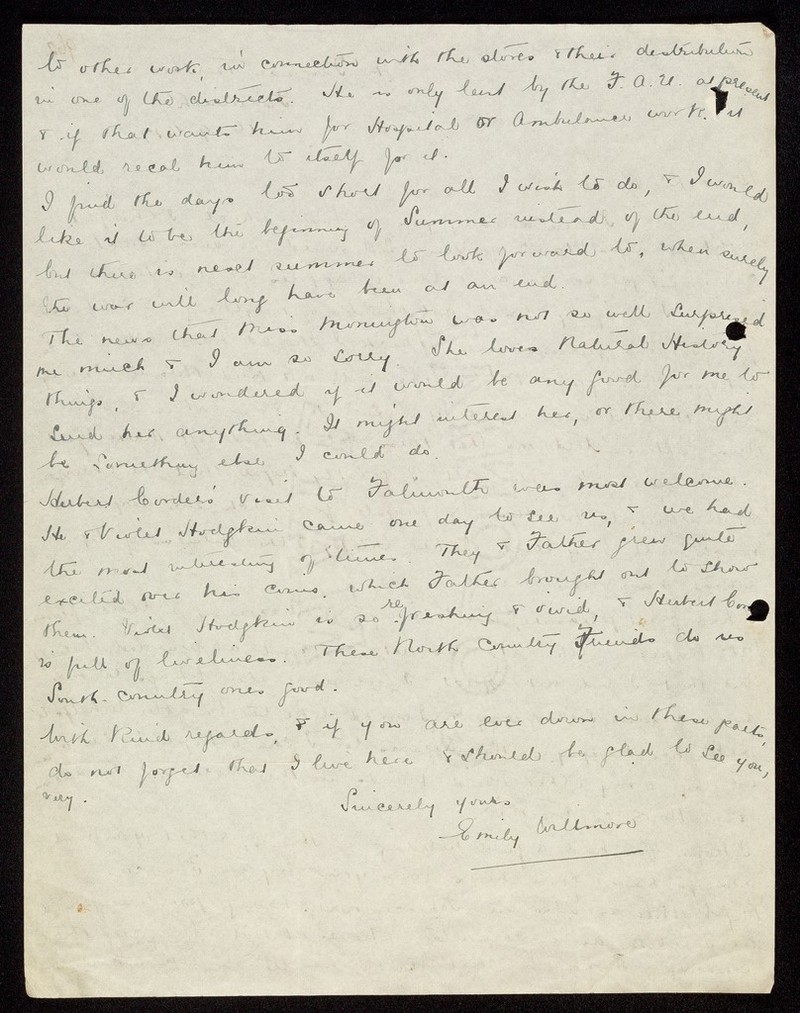 to other work, in connection with the stores & their distribution
in one of the districts. He is only lent by the F.A.U. at present
& if that wants him for Hospital or Ambulance work. it
would recal him to itself for it.
I find the days too short for all I wish to do, & I would
like it to be the beginning of Summer instead of the end,
but there is next summer to look forward to, when surely
the war will long have been at an end.
The news that Miss Monington was not so well surprised
me much & I am so sorry. She loves Natural History
things, & I wondered if it would be any good for me to
send her anything. It might interest her, or there might
be something else I could do.
Herbert Corder's visit to Falmouth was most welcome.
He & Violet Hodgkin came one day to see us, & we had
the most interesting of times. They & Father grew quite
excited over his coins, which Father brought out to show
them. Violet Hodgkin is so refreshing & vivid, & Herbert
is full of liveliness. These North Country Friends do us
South-country ones good.
With kind regards, & if you are ever down in these parts,
do not forget that I live here & should be glad to see you,
very.
Sincerely yours
Emily Willmore